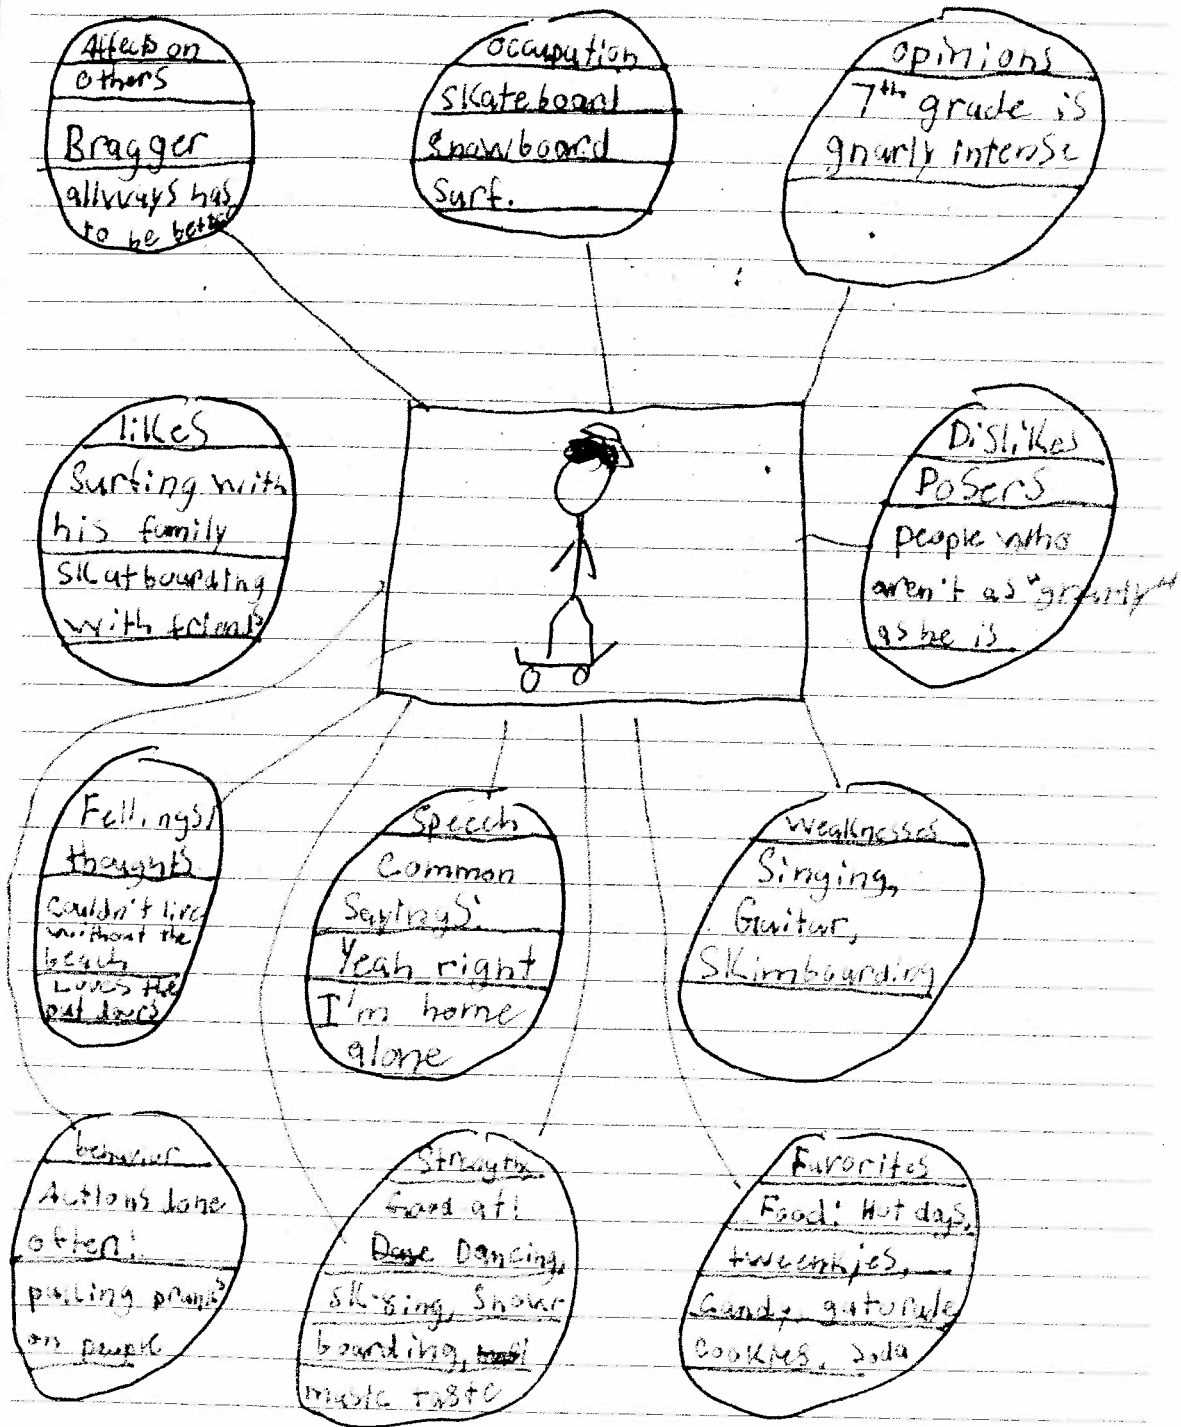 Affects on
others
Bragger
allways has
to be better
occupation
Skateboard
Snowboard
Surf.
opinions
7th grade is
gnarly intense
likes
Surfing with
his family
Skatboarding
with friends
Dislikes
Posers
people who
aren't as "gnarly"
as he is
Fellings/
thoughts
couldn't live
without the
beach
Loves the
out doors
Speech
Common
Sayings:
Yeah right
I'm home
alone
Weaknesses
Singing,
Guitar,
Skimboarding
behavior
Actions done
often:
pulling pranks
on people
Strength
Good at:
Dancing,
skiing, Snow
boarding,
music taste
Favorites
Food: Hot dogs,
tweenkies,
Candy, gatorade
Cookies, Soda